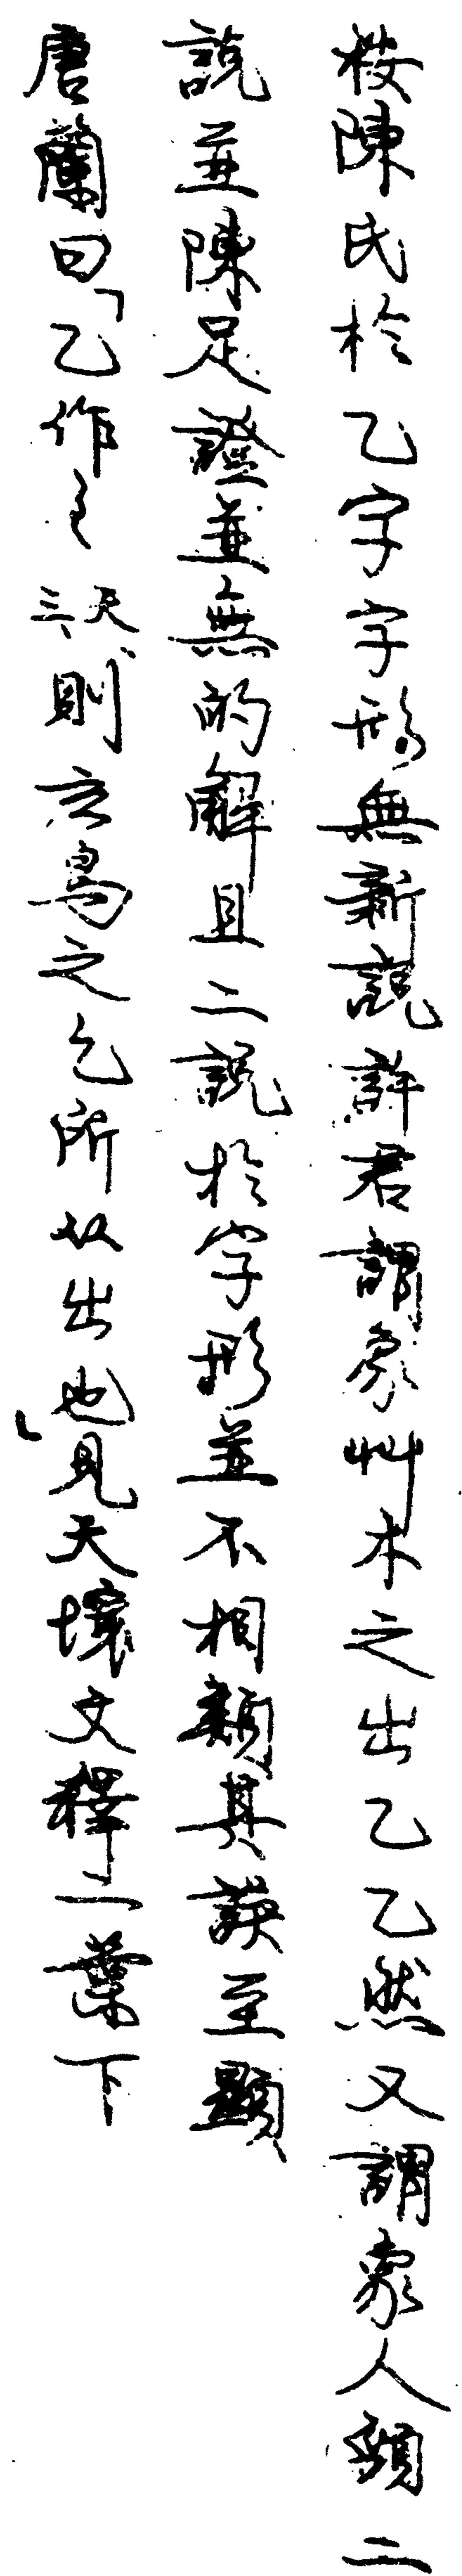 按陳氏於乙字字形無新說許君謂象艸木之出乙乙然又謂象人頸二
說並陳足證並無的解且二說於字形並不相類其誤至顯
唐蘭曰「乙作則玄鳥之乞所从出也」見天壤文釋二葉下